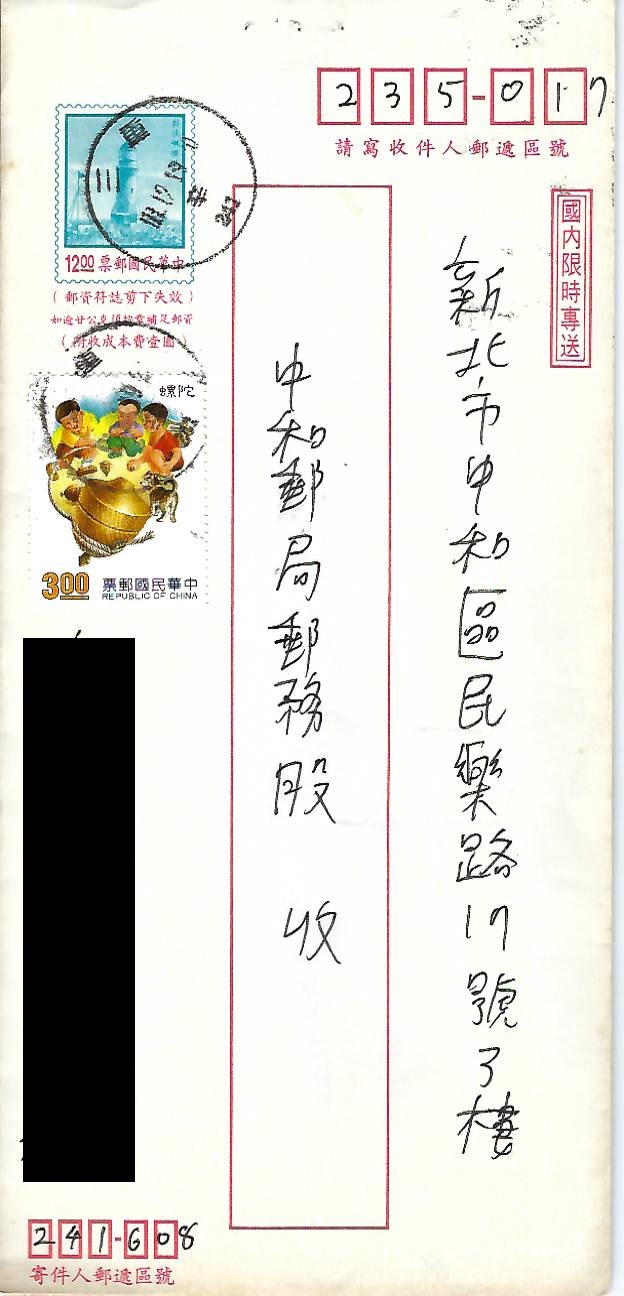 235-017
請寫收件人郵遞區號
國內限時專送
新北市中和區民樂路17號3樓
中和郵局郵務股 收
12.00 票郵國民華中
(郵資符誌剪下失效)
(附收成本費壹圓)
螺陀
3.00
票郵國民華中
REPUBLIC OF CHINA
三重
241-608
寄件人郵遞區號